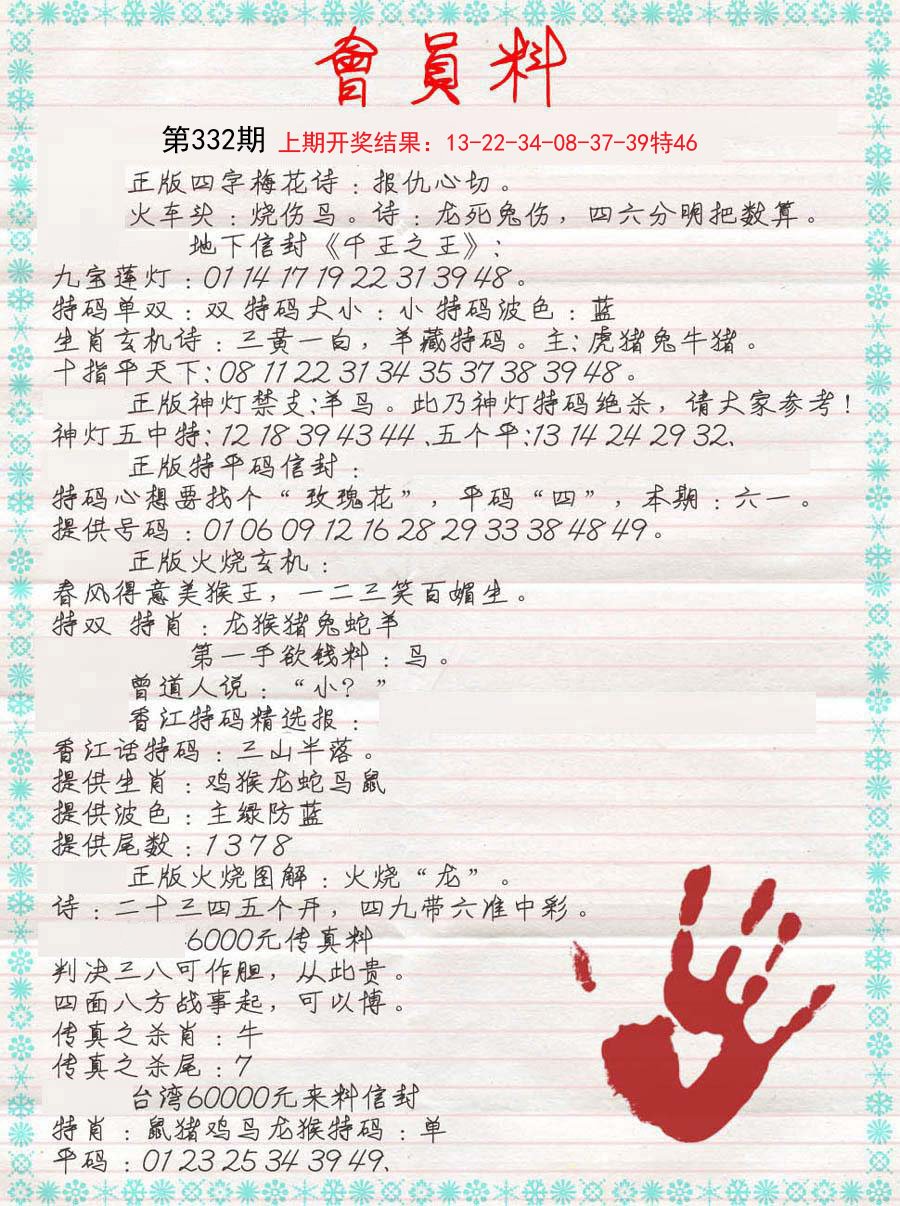 會員料
第332期 上期开奖结果：13-22-34-08-37-39特46
正版四字梅花诗：报仇心切。
火车头：烧伤鸟。诗：龙死兔伤，四六分明把数算。
地下信封《千王之王》：
九宝莲灯：01 14 17 19 22 31 39 48。
特码单双：双 特码大小：小 特码波色：蓝
生肖玄机诗：三黄一白，羊藏特码。主：虎猪兔牛猪。
十指平天下：08 11 22 31 34 35 37 38 39 48。
正版神灯禁支：羊鸟。此乃神灯特码绝杀，请大家参考！
神灯五中特：12 18 39 43 44、五个平：13 14 24 29 32、
正版特平码信封：
特码心想要找个“玫瑰花”，平码“四”，本期：六一。
提供号码：01 06 09 12 16 28 29 33 38 48 49。
正版火烧玄机：
春风得意美猴王，一二三笑百媚生。
特双 特肖：龙猴猪兔蛇羊
第一手欲钱料：马。
曾道人说：“小？”
香江特码精选报：
香江话特码：三山半落。
提供生肖：鸡猴龙蛇马鼠
提供波色：主绿防蓝
提供尾数：1 3 7 8
正版火烧图解：火烧“龙”。
诗：二十三四五个开，四九带六准中彩。
6000元传真料
判决三八可作胆，从此贵。
四面八方战事起，可以博。
传真之杀肖：牛
传真之杀尾：7
台湾60000元来料信封
特肖：鼠猪鸡马龙猴特码：单
平码：01 23 25 34 39 49、